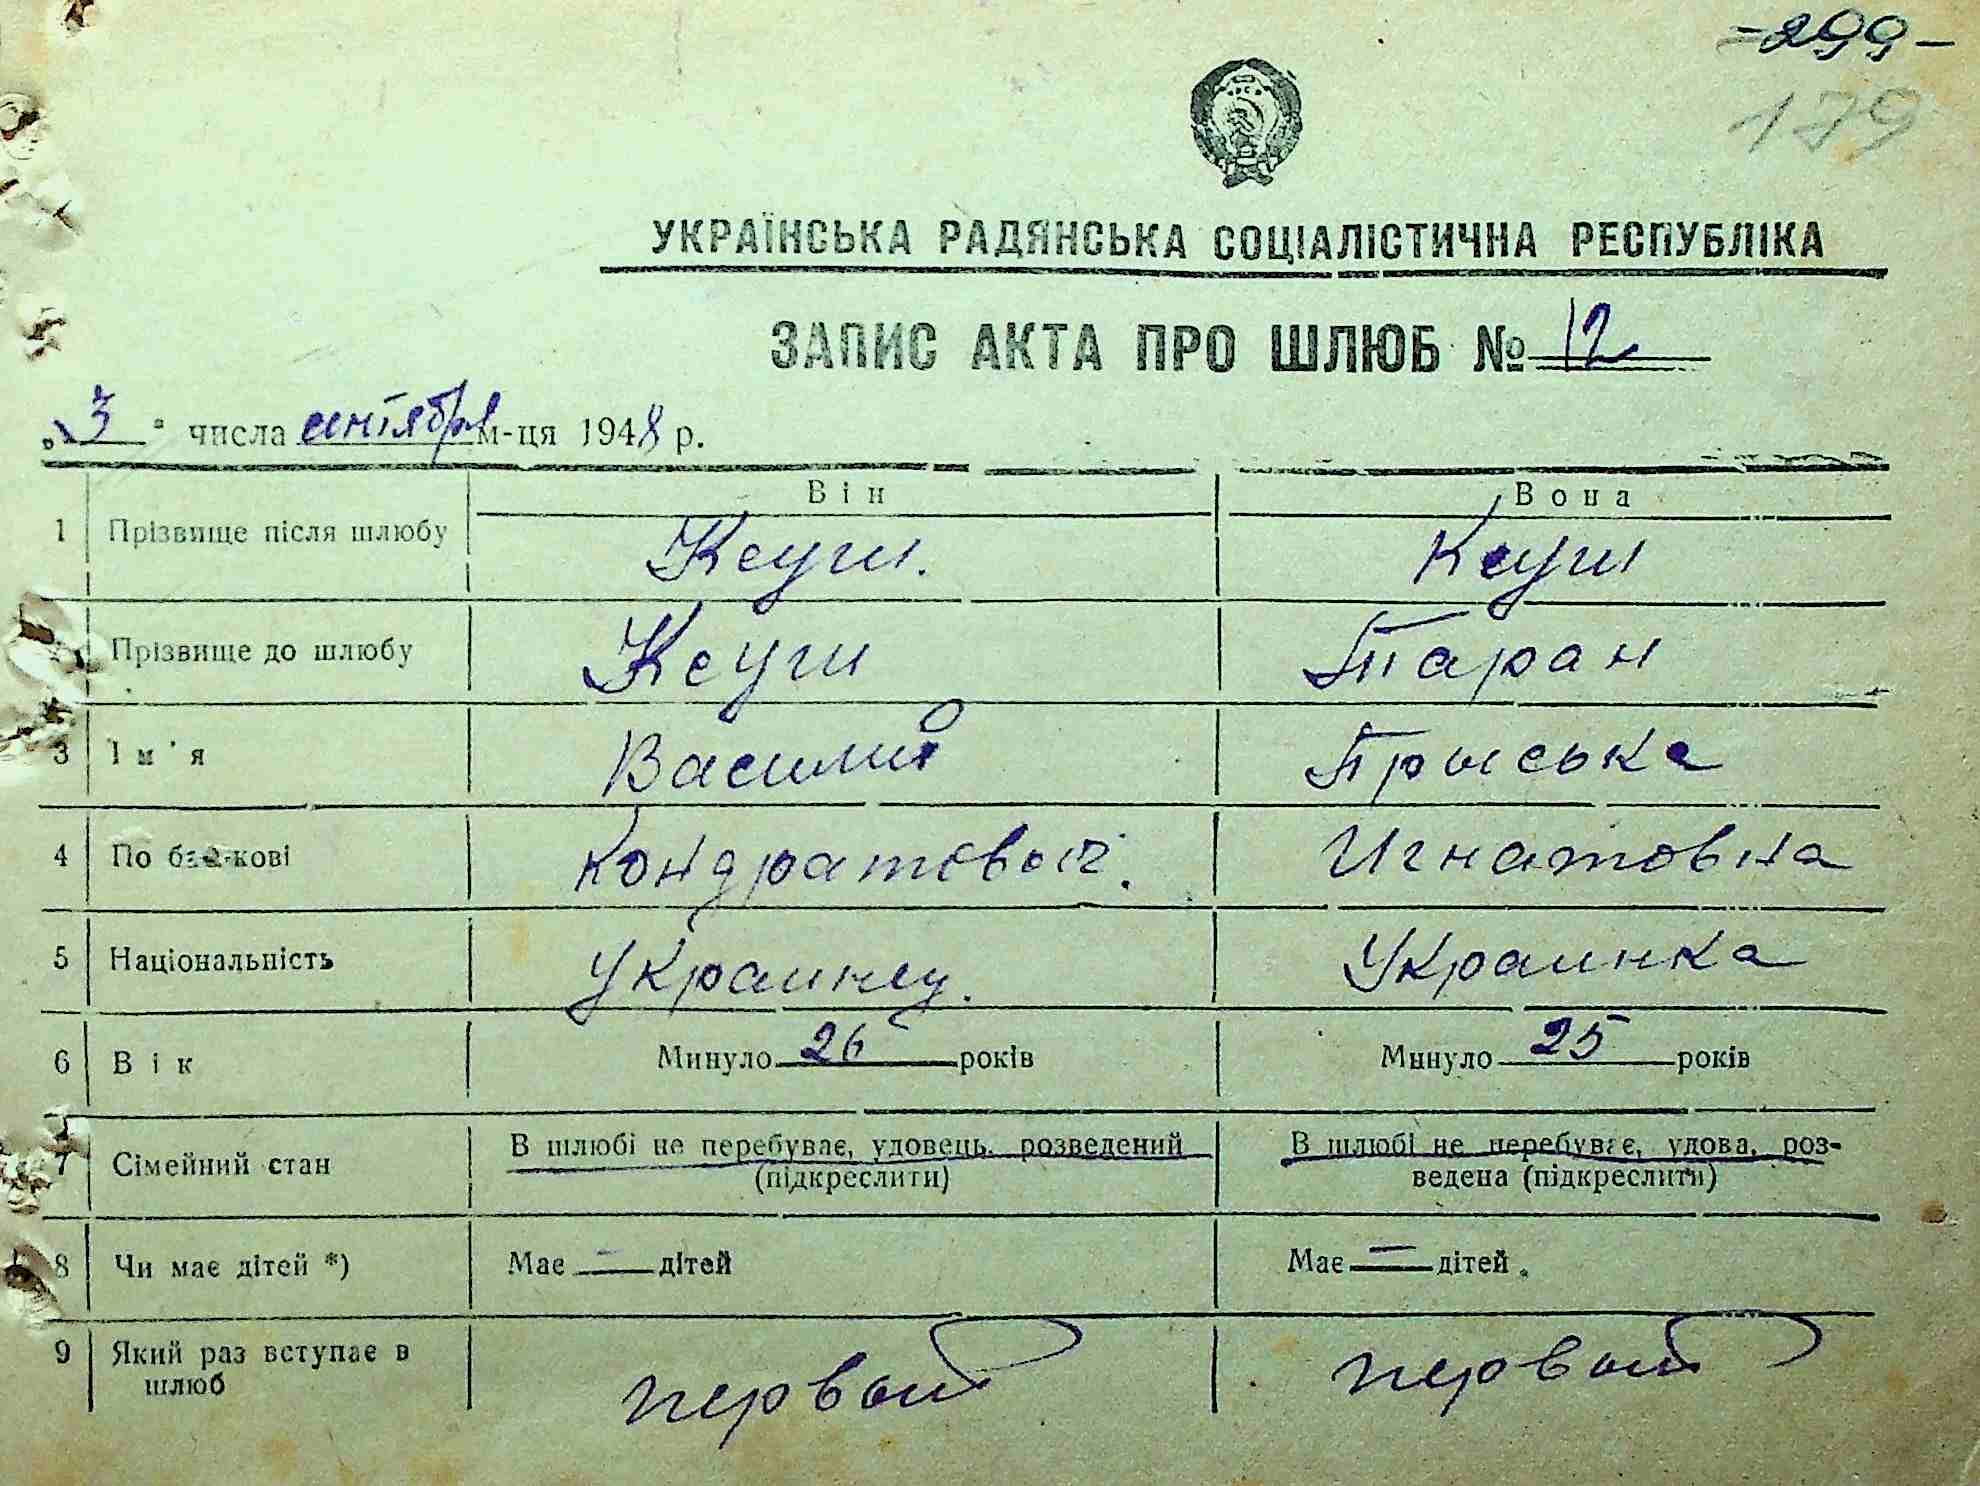 -299-
179
УКРАЇНСЬКА РАДЯНСЬКА СОЦІАЛІСТИЧНА РЕСПУБЛІКА
ЗАПИС АКТА ПРО ШЛЮБ № 12
„3" числа сентября м-ця 1948 р.
Він Вона
1 Прізвище після шлюбу Кеуги. Кеуги
Прізвище до шлюбу Кеуги Таран
3 Ім'я Василий Прыська
4 По батькові Кондратовыч. Игнатовна
5 Національність Украинец. Украинка
6 Вік Минуло 26 років Минуло 25 років
7 Сімейний стан В шлюбі не перебуває, удовець, розведений (підкреслити) В шлюбі не перебуває, удова, роз-
ведена (підкреслити)
8 Чи має дітей *) Має — дітей Має — дітей.
9 Який раз вступає в
шлюб первый первый